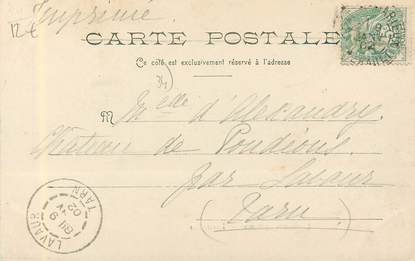 Imprimé
12€
CARTE POSTALE
Ce côté est exclusivement réservé à l'adresse
34)
M elle d'Alexandry
Château de Poudéous
par Lavaur
(Tarn)
LAVAUR
TARN
02